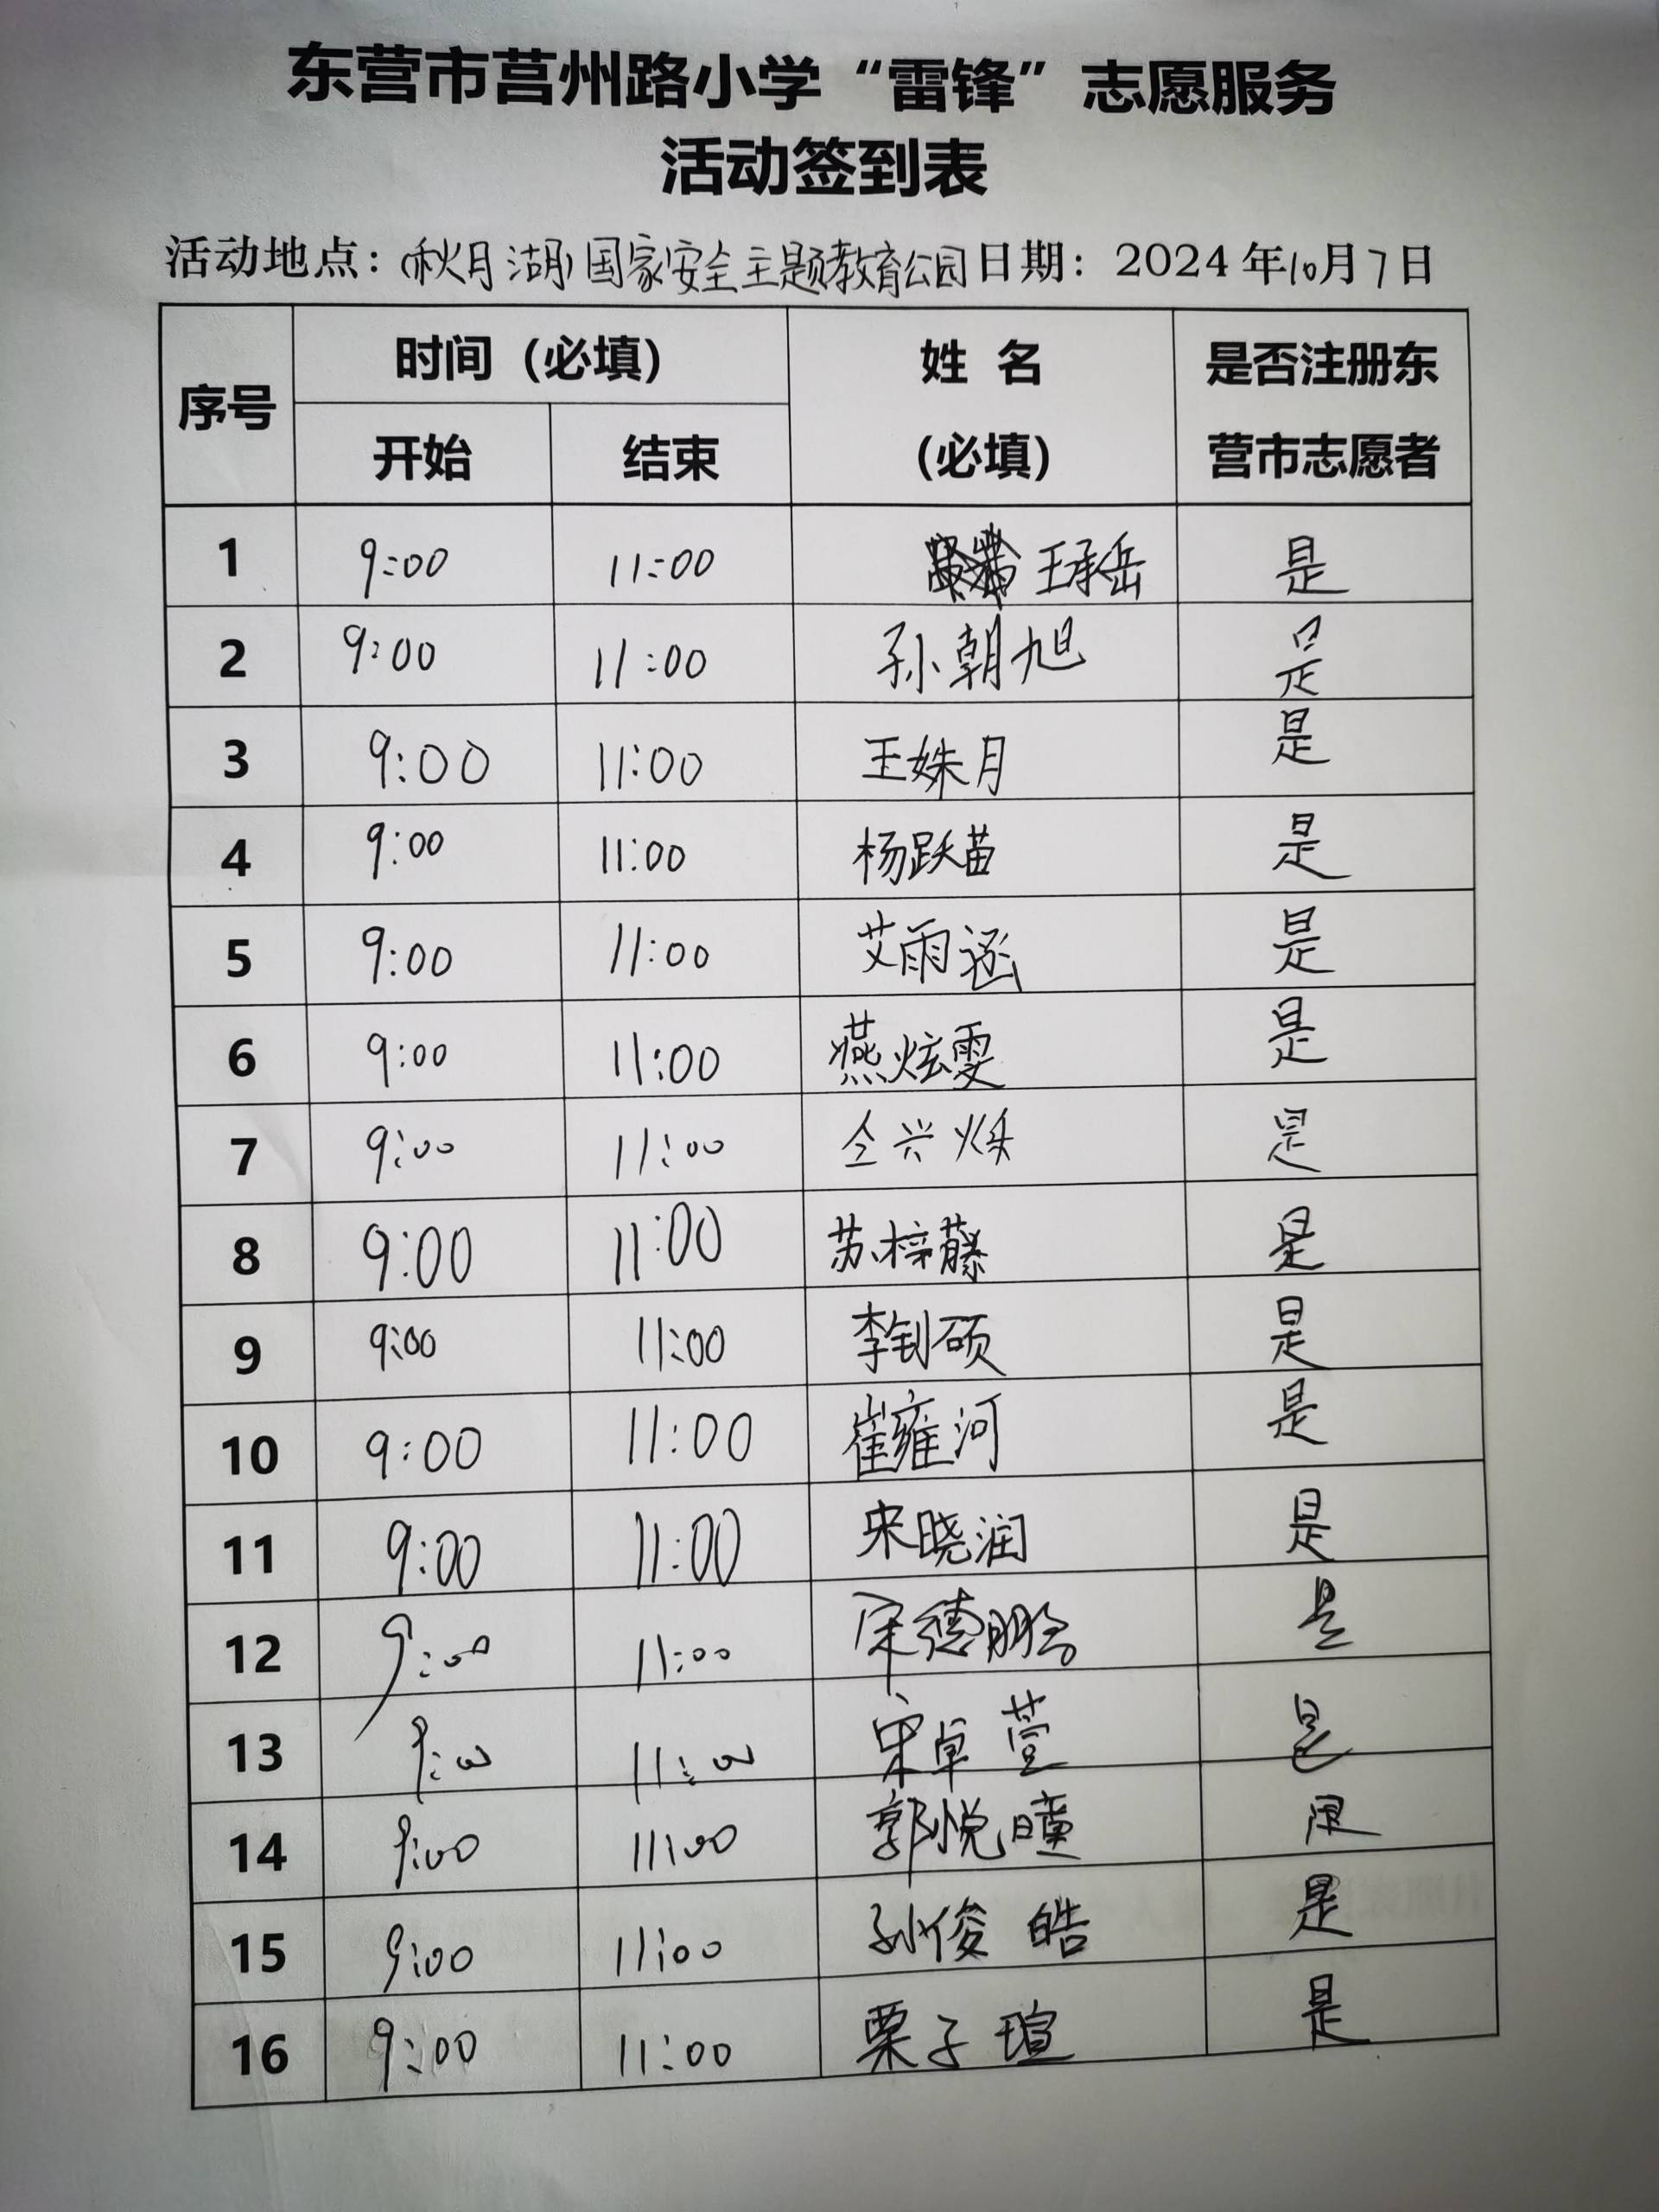 东营市莒州路小学“雷锋”志愿服务
活动签到表
活动地点：（秋月湖）国家安全主题教育公园 日期：2024年10月7日
序号 时间（必填） 姓 名（必填） 是否注册东营市志愿者
开始 结束
1 9:00 11:00 王承岳 是
2 9:00 11:00 孙朝旭 是
3 9:00 11:00 王姝月 是
4 9:00 11:00 杨跃苗 是
5 9:00 11:00 艾雨涵 是
6 9:00 11:00 燕炫雯 是
7 9:00 11:00 仝兴烁 是
8 9:00 11:00 苏梓藤 是
9 9:00 11:00 李钊硕 是
10 9:00 11:00 崔雍河 是
11 9:00 11:00 宋晓润 是
12 9:00 11:00 宋德鹏 是
13 9:00 11:00 宋卓萱 是
14 9:00 11:00 郭悦瞳 是
15 9:00 11:00 孙俊皓 是
16 9:00 11:00 栗子瑄 是